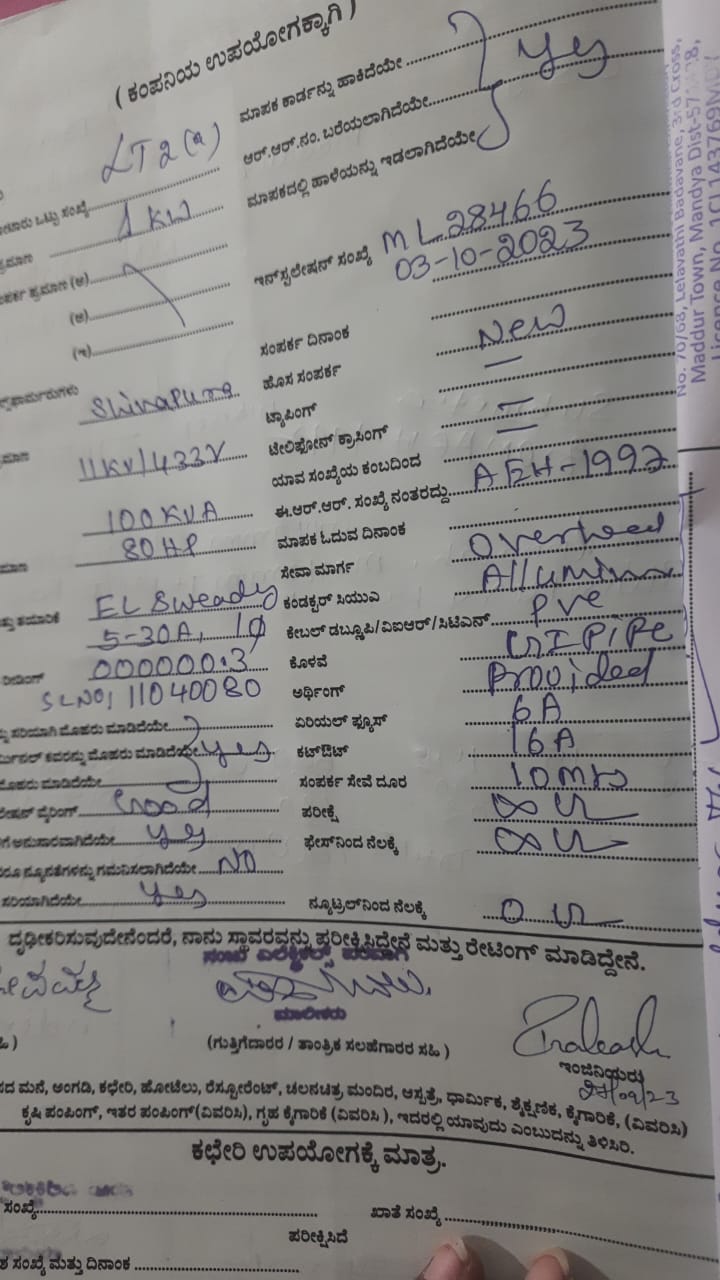 ( ಕಂಪನಿಯ ಉಪಯೋಗಕ್ಕಾಗಿ )
LT2(a) ಮಾಪಕ ಕಾರ್ಡನ್ನು ಹಾಕಿದೆಯೇ
ಆರ್.ಆರ್.ನಂ. ಬರೆಯಲಾಗಿದೆಯೇ yes
ಒಟ್ಟು ಸಂಖ್ಯೆ 1 KW ಮಾಪಕದಲ್ಲಿ ಹಾಳೆಯನ್ನು ಇಡಲಾಗಿದೆಯೇ
ಪ್ರಮಾಣ (ಅ)
(ಆ) ಇನ್‌ಸ್ಟಲೇಷನ್ ಸಂಖ್ಯೆ ML28466
03-10-2023
(ಇ) ಸಂಪರ್ಕ ದಿನಾಂಕ
Shivapura ಹೊಸ ಸಂಪರ್ಕ New
ಟ್ಯಾಪಿಂಗ್ —
11KV/433V ಟೆಲಿಫೋನ್ ಕ್ರಾಸಿಂಗ್
ಯಾವ ಸಂಖ್ಯೆಯ ಕಂಬದಿಂದ
100KVA ಈ.ಆರ್.ಆರ್. ಸಂಖ್ಯೆ ನಂತರದ್ದು AEH-1992
80HP ಮಾಪಕ ಓದುವ ದಿನಾಂಕ
ಸೇವಾ ಮಾರ್ಗ Overhead
ಕಂಡಕ್ಟರ್ ಸಿಯುಎ
5-30A, 1φ ಕೇಬಲ್ ಡಬ್ಲ್ಯುಪಿ/ವಿಐಆರ್/ಸಿಟಿಎನ್ PVC
ರೀಡಿಂಗ್ 000000.3 ಕೊಳವೆ GI PIPE
SLNO: 11040080 ಅರ್ಥಿಂಗ್ Provided
ಸರಿಯಾಗಿ ಮೊಹರು ಮಾಡಿದೆಯೇ ಏರಿಯಲ್ ಫ್ಯೂಸ್ 6A
ಕವರನ್ನು ಮೊಹರು ಮಾಡಿದೆಯೇ yes ಕಟ್‌ಔಟ್ 16A
ಮೊಹರು ಮಾಡಿದೆಯೇ ಸಂಪರ್ಕ ಸೇವೆ ದೂರ 10mts
ವೈರಿಂಗ್ Good ಪರೀಕ್ಷೆ ∞ Ω
ಅನುಸಾರವಾಗಿದೆಯೇ yes ಫೇಸ್‌ನಿಂದ ನೆಲಕ್ಕೆ ∞ Ω
ನ್ಯೂನತೆಗಳನ್ನು ಗಮನಿಸಲಾಗಿದೆಯೇ NO
ಸರಿಯಾಗಿದೆಯೇ yes ನ್ಯೂಟ್ರಲ್‌ನಿಂದ ನೆಲಕ್ಕೆ 0 Ω
ದೃಢೀಕರಿಸುವುದೇನೆಂದರೆ, ನಾನು ಸ್ಥಾವರವನ್ನು ಪರೀಕ್ಷಿಸಿದ್ದೇನೆ ಮತ್ತು ರೇಟಿಂಗ್ ಮಾಡಿದ್ದೇನೆ.
ಮಾಲೀಕರು
(ಗುತ್ತಿಗೆದಾರರ / ತಾಂತ್ರಿಕ ಸಲಹೆಗಾರರ ಸಹಿ )
ಇಂಜಿನಿಯರು
ಮನೆ, ಅಂಗಡಿ, ಕಛೇರಿ, ಹೋಟೆಲು, ರೆಸ್ಟೋರೆಂಟ್, ಚಲನಚಿತ್ರ ಮಂದಿರ, ಆಸ್ಪತ್ರೆ, ಧಾರ್ಮಿಕ, ಶೈಕ್ಷಣಿಕ, ಕೈಗಾರಿಕೆ, (ವಿವರಿಸಿ)
ಕೃಷಿ ಪಂಪಿಂಗ್, ಇತರ ಪಂಪಿಂಗ್(ವಿವರಿಸಿ), ಗೃಹ ಕೈಗಾರಿಕೆ (ವಿವರಿಸಿ ), ಇದರಲ್ಲಿ ಯಾವುದು ಎಂಬುದನ್ನು ತಿಳಿಸಿರಿ.
ಕಛೇರಿ ಉಪಯೋಗಕ್ಕೆ ಮಾತ್ರ.
ಸಂಖ್ಯೆ ಖಾತೆ ಸಂಖ್ಯೆ
ಪರೀಕ್ಷಿಸಿದೆ
ಸಂಖ್ಯೆ ಮತ್ತು ದಿನಾಂಕ
No. 70/68, Lelavathi Badavane, 3rd Cross,
Maddur Town, Mandya Dist-